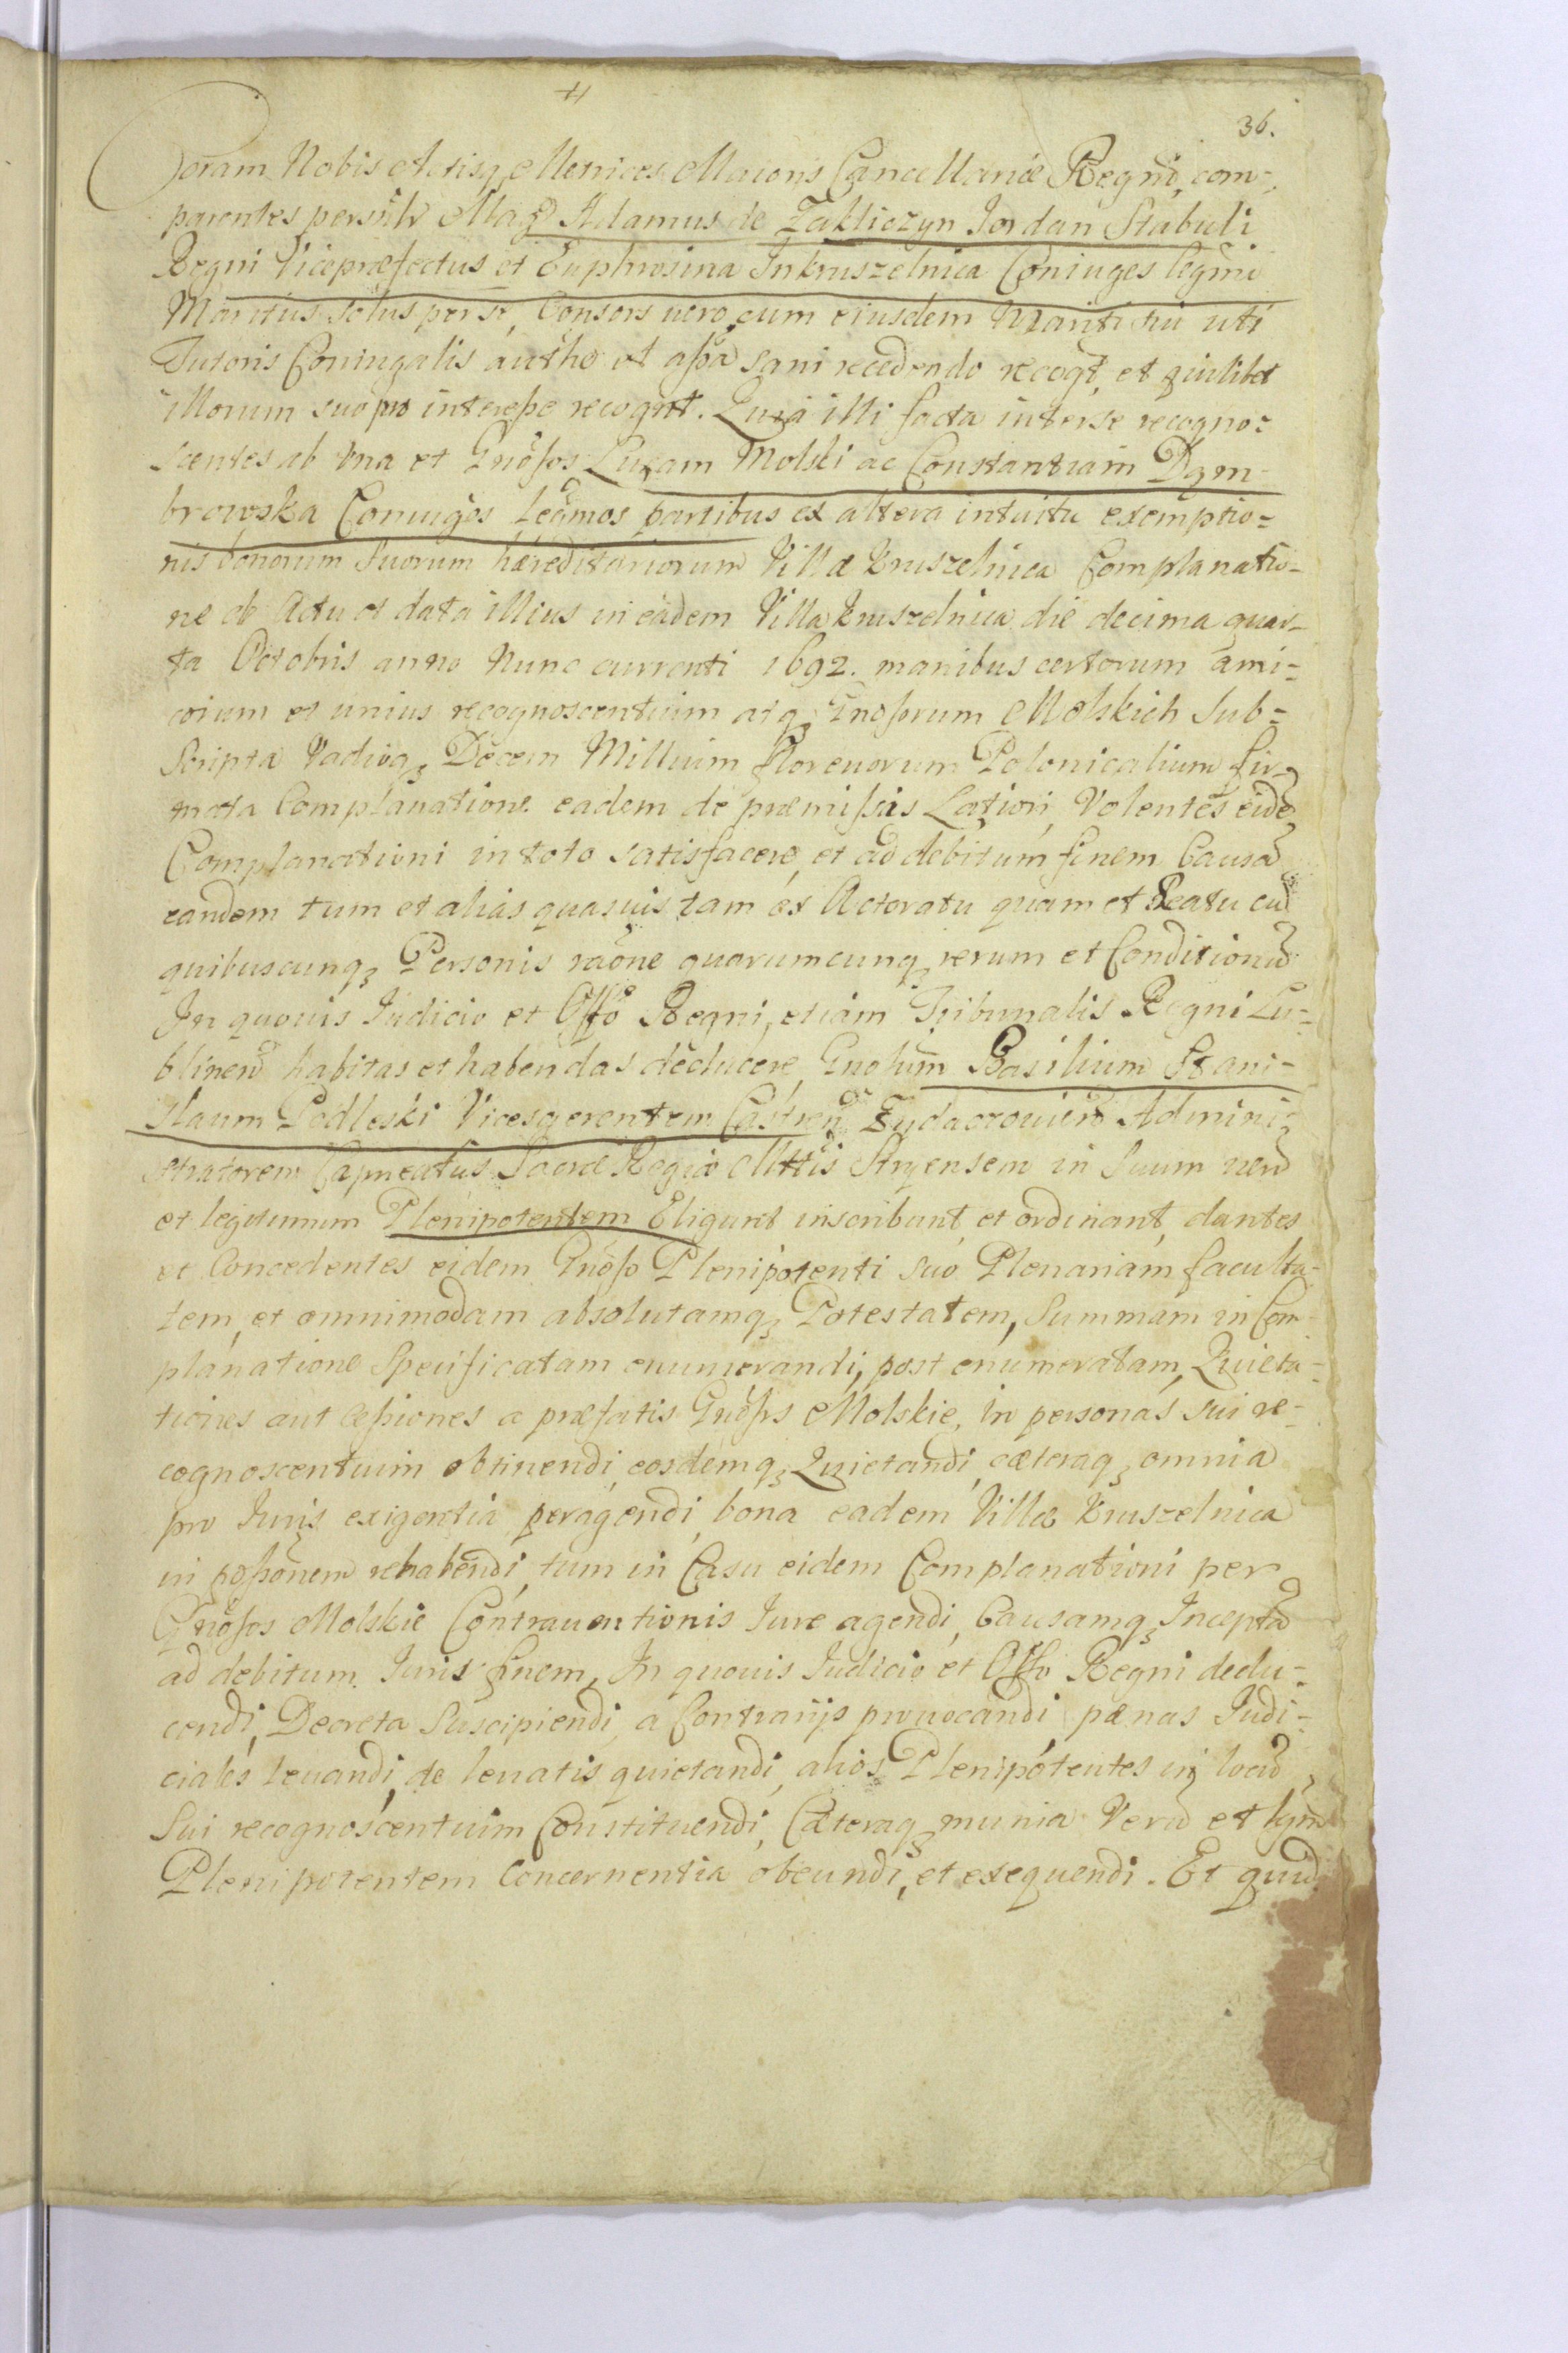 36.
Coram Nobis Actisq Metrices Maioris Cancellariæ Regni, com-
parentes persnlr Mag Adamus de Zakliczyn Iordan Stabuli
Regni Vicepræfectus et Euphrosina Inkruszelnica Coniuges legmi
Maritus solus per se, Consors uero cum eiusdem Mariti sui uti
Tutoris Coniugalis autho et assa sani recedendo recogt, et quilibet
illorum suo pro interesse recognt. Quia illi facta inter se recogno=
scentes ab Vna et Gnosos Lucam Molski ac Constantiam Dąm-
browska Coniuges Legmos partibus ex altera intuitu exemptio=
nis bonorum Suorum hæreditariorum Villæ Kruszelnica Complanatio-
ne de Actu et data illius in eadem Villa Kruszelnica die decima quar-
ta Octobris anno Nunc currenti 1692. manibus certorum ami=
corum et unius recognoscentium atq Gnosorum Molskich Sub=
scripta Vadioq Decem Millium florenorum Polonicalium fir-
mata Complanatione eadem de præmissis Latiori, Volentes eide
Complanationi in toto satisfacere, et ad debitum finem Causa
eandem tum et alias quasuis tam ex Actoratu quam et Reatu cu
quibuscunq Personis raone quarumcunq rerum et Conditionu
In quouis Iudicio et Offo Regni, etiam Tribunalis Regni Lu=
blinen habitas et habendas deducere, Gnosum Basilium Stani-
slaum Podleski Vicesgerentem Castren Zydaczouien Admini-
stratorem Capneatus Sacræ Regiæ Mttis Stryensem in Suum ueru
et legitimum Plenipotentem Eligunt inscribunt, et ordinant, dantes
et Concedentes eidem Gnoso Plenipotenti suo Plenariam faculta-
tem, et omnimodam absolutamq Potestatem, Summam in Com-
planatione Specificatam enumerandi, post enumeratam, Quieta-
tiones aut Cessiones a præfatis Gnosis Molskie, in personas sui re-
cognoscentium obtinendi, eosdemq Quietandi, cæteraq omnia
pro Iuris exigentia peragendi, bona eadem Villæ Kruszelnica
in possonem rehabendi, tum in Casu eidem Complanationi per
Gnosos Molskie Contrauentionis Iure agendi, Causamq Incepta
ad debitum Iuris finem, In quouis Iudicio et Offo Regni dedu=
cendi, Decreta Suscipiendi, a Contrarijs prouocandi, pænas Iudi=
ciales leuandi, de leuatis quietandi, alios Plenipotentes in locu
Sui recognoscentium Constituendi, Cæteraq munia Veru et lgmu
Plenipotentem Concernentia obeundi, et exequendi. Et quid